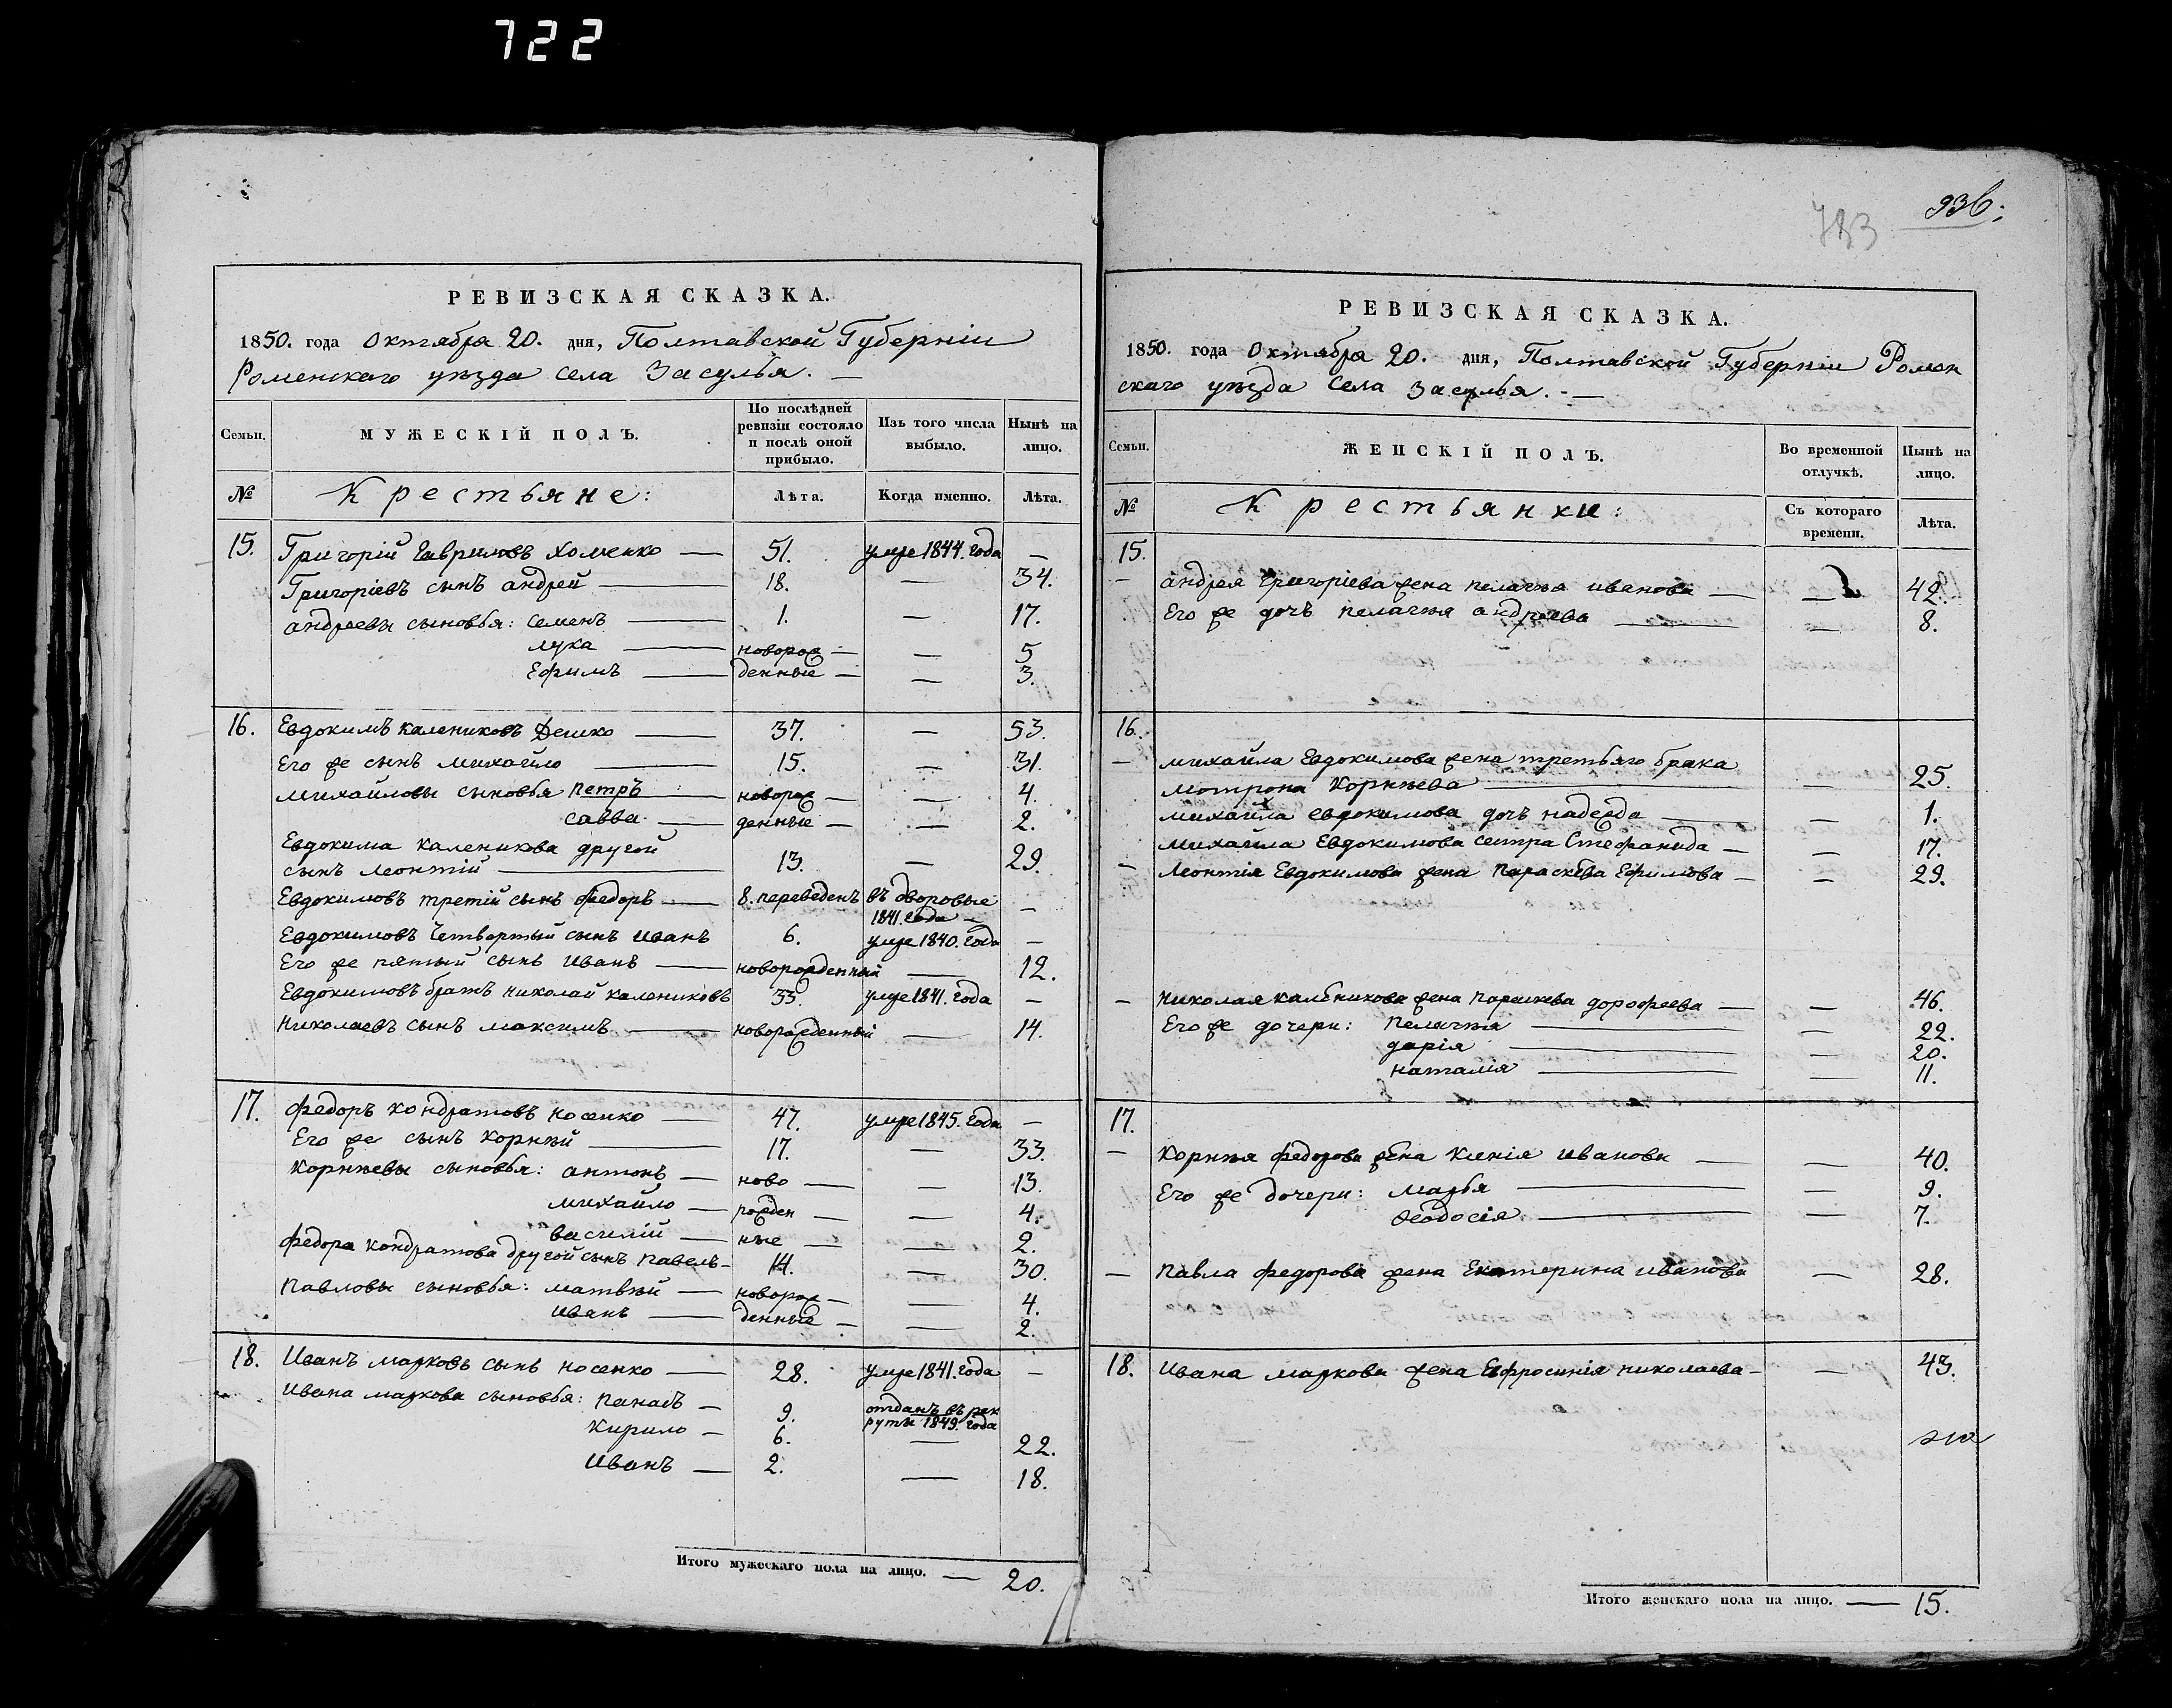 722
936.
783
РЕВИЗСКАЯ СКАЗКА.
1850. года Октября 20. дня, Полтавской Губерніи
Роменскаго уѣзда села Засулья. —
Семьи. МУЖЕСКІЙ ПОЛЪ. По послѣдней ревизіи состояло и послѣ оной прибыло. Изъ того числа выбыло. Нынѣ на лицо.
№ Крестьяне: Лѣта. Когда именно. Лѣта.
15. Григорій Гавриловъ Хоменко — 51. умре 1844. года —
Григоріевъ сынъ андрей — 18. — 34.
андреевы сыновья: Семенъ — 1. — 17.
лука — новорож — — 5
Ефимъ — денные — — 3.
16. Евдокимъ калениковъ Дешко — 37. — 53.
Его же сынъ михайло — 15. — 31.
михайловы сыновья петръ — новорож — — 4.
савва — денные — — 2.
Евдокима каленикова другой
сынъ леонтій — 13. — 29.
Евдокимовъ третій сынъ федоръ — 8. переведенъ въ дворовые
1841. года — —
Евдокимовъ Четвертый сынъ иванъ 6. умре 1840. года —
Его же пятый сынъ иванъ — новорожденный — 12.
Евдокимовъ братъ николай калениковъ 33. умре 1841. года —
Николаевъ сынъ максимъ — новорожденный — 14.
17. Федоръ кондратовъ носенко — 47. умре 1845. года —
Его же сынъ корнѣй — 17. — 33.
корнѣевы сыновья: антонъ — ново — — 13.
михайло — рожден — — 4.
василій — ные — — 2.
Федора кондратова другой сынъ павелъ — 14. — 30.
Павловы сыновья: матвѣй — новорож — — 4.
иванъ — денные — — 2.
18. Иванъ марковъ сынъ носенко — 28. умре 1841. года —
Ивана маркова сыновья: панасъ — 9. отданъ въ рек
руты 1849. года
Кирило — 6. — 22.
Иванъ — 2. — 18.
Итого мужескаго пола на лицо. — 20.
РЕВИЗСКАЯ СКАЗКА.
1850. года Октября 20. дня, Полтавской Губерніи Ромен
скаго уѣзда села Засулья. —
Семьи. ЖЕНСКІЙ ПОЛЪ. Во временной отлучкѣ. Нынѣ на лицо.
№ Крестьянки: Съ котораго времени. Лѣта.
15.
— андрея Григоріева жена пелагѣя иванова — — 42.
Его же дочь пелагѣя андреева — — 8.
16.
— михайла Евдокимова жена третьяго брака
мотрона Корнѣева — — 25.
михайла евдокимова дочь надежда — — 1.
михайла Евдокимова сестра Стефанида — — 17.
— Леонтія Евдокимова жена Параскева Ефимова — — 29.
— Николая каленикова жена параскева дорофеева — — 46.
Его же дочери: пелагѣя — — 22.
дарія — — 20.
наталія — — 11.
17.
— Корнѣя федорова жена Ксенія иванова — — 40.
Его же дочери: марья — — 9.
Феодосія — — 7.
— Павла федорова жена Екатерина иванова — 28.
18. Ивана маркова жена Ефросинія николаева — — 43.
Итого женскаго пола на лицо. — 15.